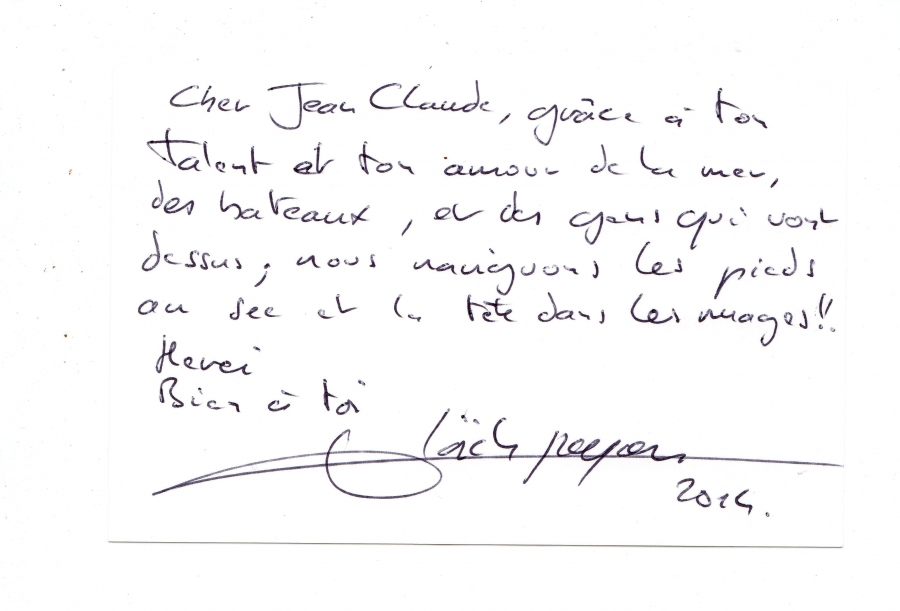 Cher Jean Claude, grâce à ton
talent et ton amour de la mer,
des bateaux, et des gens qui vont
dessus; nous naviguons les pieds
au sec et la tête dans les nuages!!
Merci
Bien à toi
Loïck Peyron
2014.